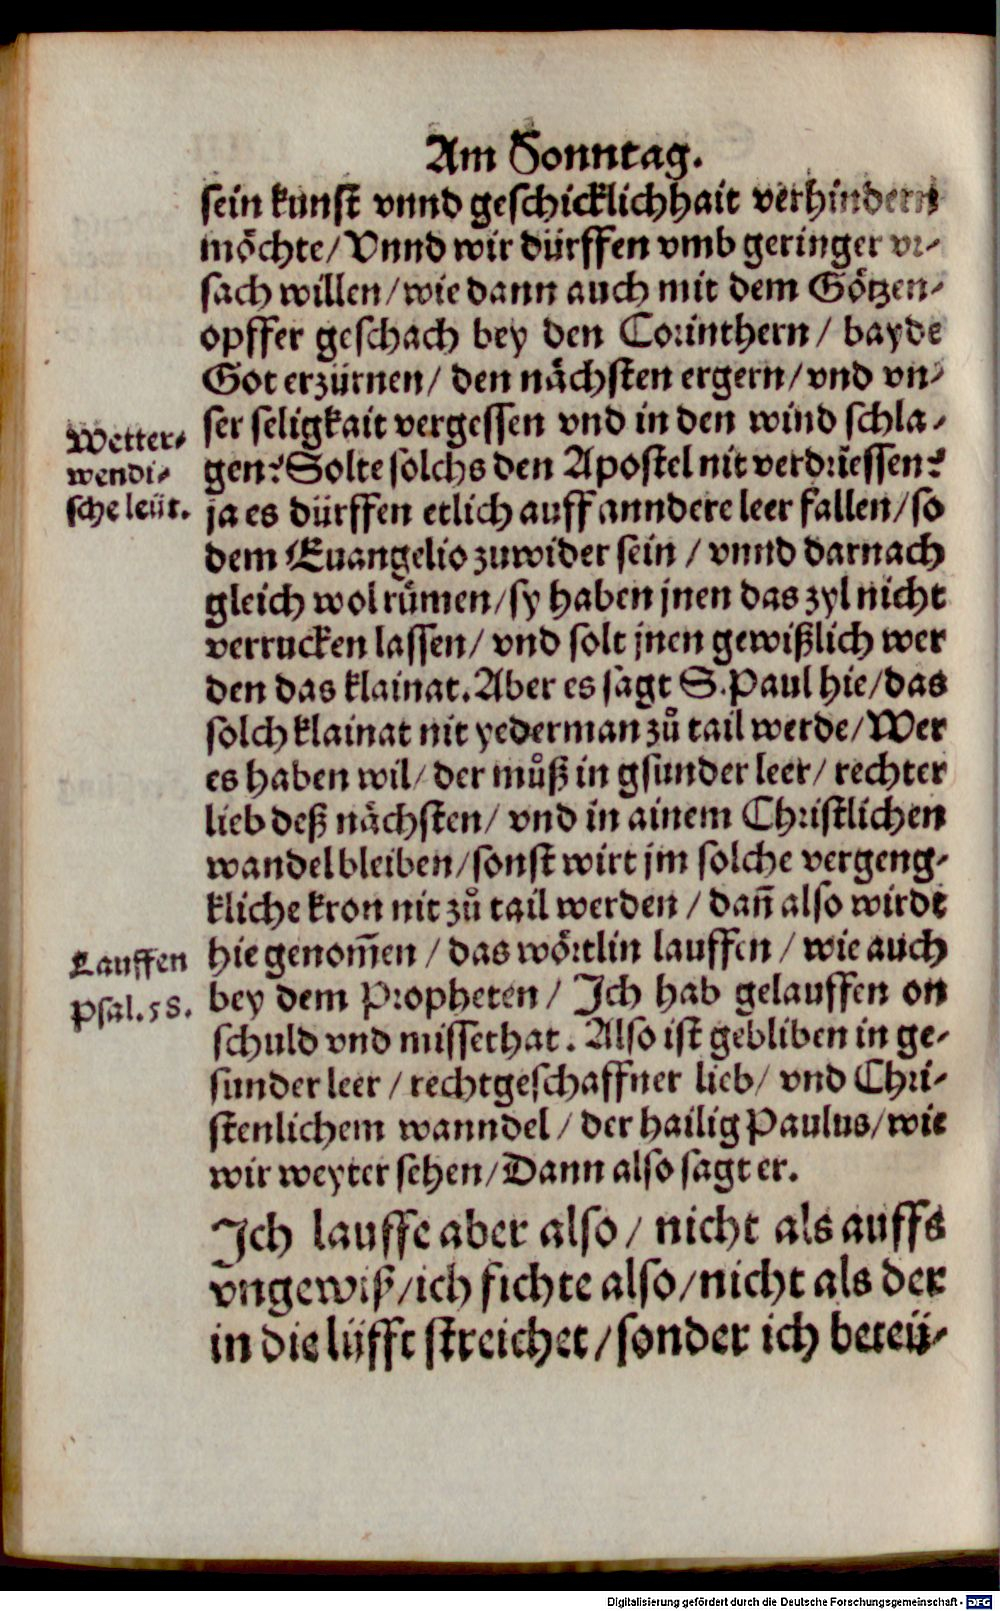 Am Sonntag.
sein kunst vnnd geschicklichhait verhindern
möchte/ Vnnd wir dürffen vmb geringer vr-
sach willen/ wie dann auch mit dem Götzen-
opffer geschach bey den Corinthern/ bayde
Got erzürnen/ den nächsten ergern/ vnd vn-
ser seligkait vergessen vnd in den wind schla-
Wetter-
wendi-
sche leüt.
gen? Solte solchs den Apostel nit verdriessen?
ja es dürffen etlich auff anndere leer fallen/ so
dem Euangelio zuwider sein/ vnnd darnach
gleich wol rümen/ sy haben jnen das zyl nicht
verrucken lassen/ vnd solt jnen gewißlich wer
den das klainat. Aber es sagt S. Paul hie/ das
solch klainat nit yederman zů tail werde/ Wer
es haben wil/ der můß in gsunder leer/ rechter
lieb deß nächsten/ vnd in ainem Christlichen
wandel bleiben/ sonst wirt jm solche vergeng-
kliche kron nit zů tail werden/ dañ also wirdt
Lauffen
Psal. 58.
hie genom̃en/ das wörtlin lauffen/ wie auch
bey dem Propheten/ Ich hab gelauffen on
schuld vnd missethat. Also ist gebliben in ge-
sunder leer/ rechtgeschaffner lieb/ vnd Chri-
stenlichem wanndel/ der hailig Paulus/ wie
wir weyter sehen/ Dann also sagt er.
Ich lauffe aber also/ nicht als auffs
vngewiß/ ich fichte also/ nicht als der
in die lüfft streichet/ sonder ich beteü-
Digitalisierung gefördert durch die Deutsche Forschungsgemeinschaft - DFG